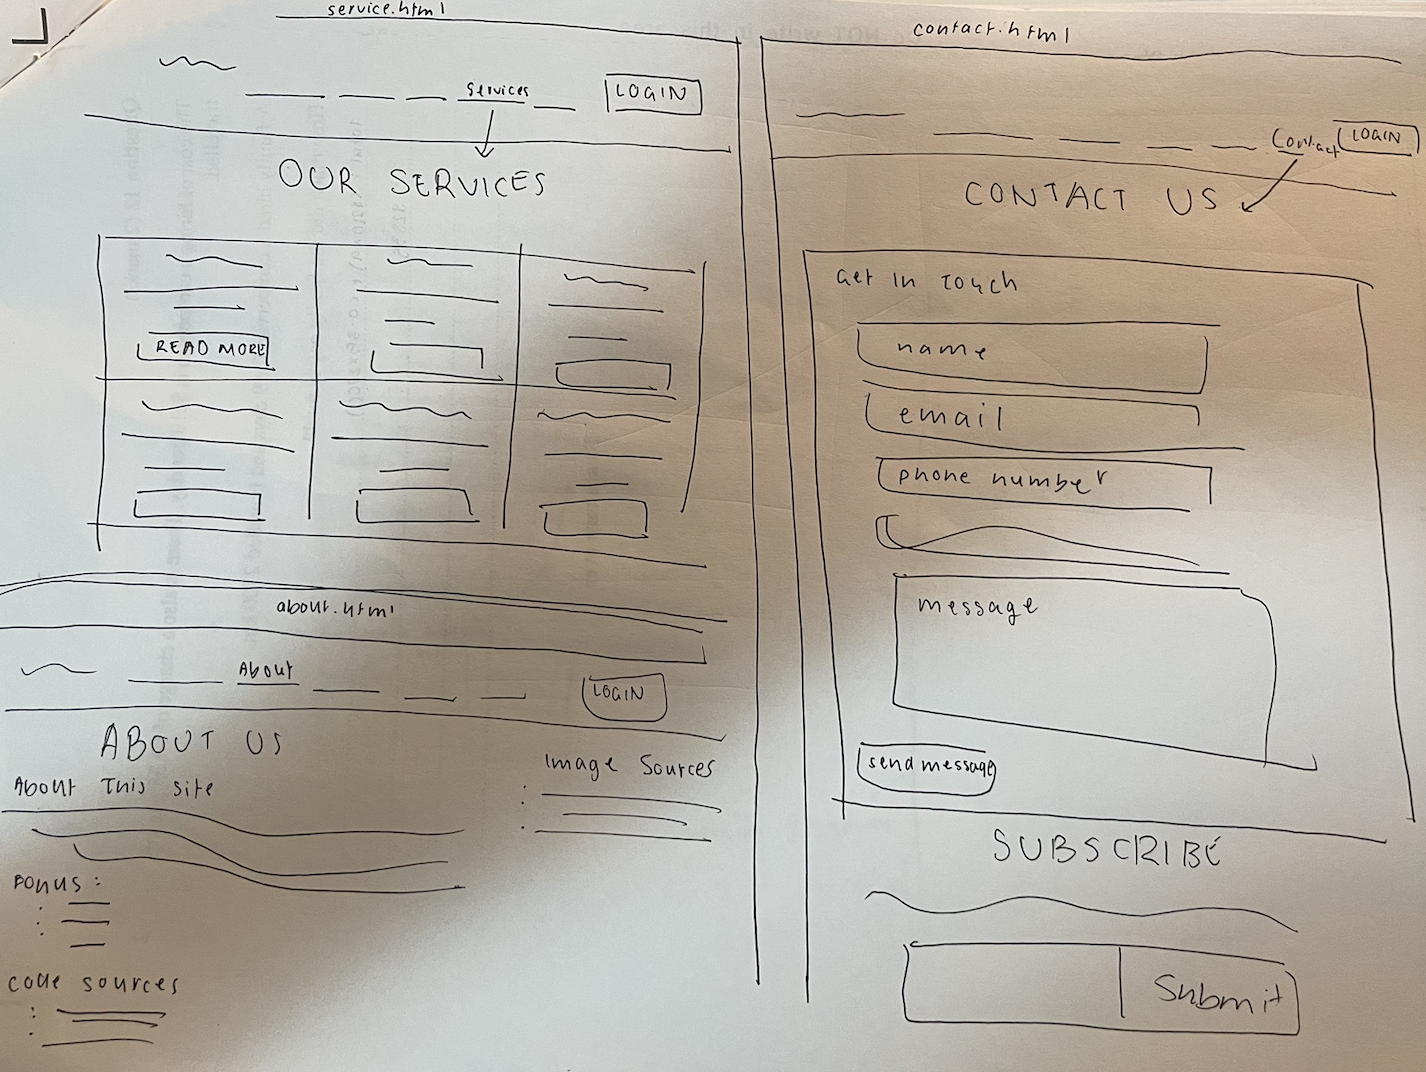 service.html
Services
LOGIN
OUR SERVICES
READ MORE
about.html
About
LOGIN
ABOUT US
About This site
Bonus:
code sources
Image Sources
contact.html
Contact
LOGIN
CONTACT US
Get In Touch
name
email
phone number
message
send message
SUBSCRIBE
Submit